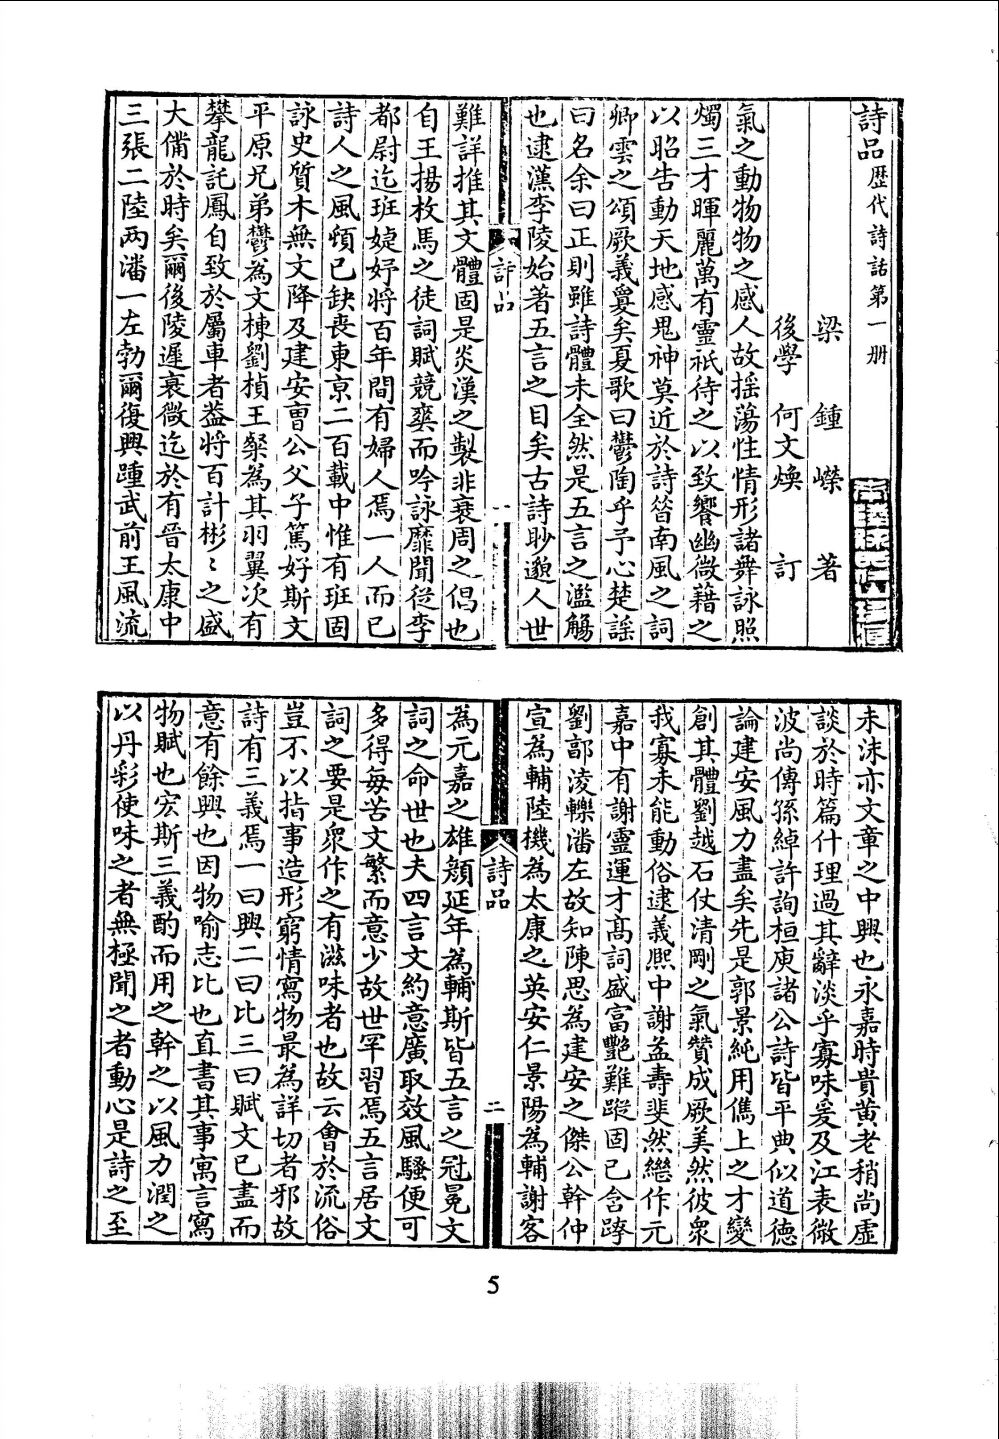 詩品 歴代詩話第一册
梁 鍾嶸 著
後學 何文煥 訂
氣之動物物之感人故揺蕩性情形諸舞詠照
燭三才暉麗萬有靈祇待之以致饗幽微藉之
以昭告動天地感鬼神莫近於詩昔南風之詞
卿雲之頌厥義敻矣夏歌曰鬱陶乎予心楚謡
曰名余曰正則雖詩體未全然是五言之濫觴
也逮漢李陵始著五言之目矣古詩眇邈人世
詩品
一
難詳推其文體固是炎漢之製非衰周之倡也
自王揚枚馬之徒詞賦競爽而吟詠靡聞從李
都尉迄班婕妤將百年間有婦人焉一人而已
詩人之風頓已缺喪東京二百載中惟有班固
詠史質木無文降及建安曹公父子篤好斯文
平原兄弟鬱為文棟劉楨王粲為其羽翼次有
攀龍託鳳自致於屬車者葢將百計彬〻之盛
大備於時矣爾後陵遲衰微迄於有晉太康中
三張二陸两潘一左勃爾復興踵武前王風流
未沫亦文章之中興也永嘉時貴黃老稍尚虛
談於時篇什理過其辭淡乎寡味爰及江表微
波尚傳孫綽許詢桓庾諸公詩皆平典似道德
論建安風力盡矣先是郭景純用儁上之才變
創其體劉越石仗清剛之氣贊成厥美然彼衆
我寡未能動俗逮義熙中謝益壽斐然繼作元
嘉中有謝靈運才髙詞盛富艷難蹤固已含跨
劉郭淩轢潘左故知陳思為建安之傑公幹仲
宣為輔陸機為太康之英安仁景陽為輔謝客
詩品
二
為元嘉之雄顔延年為輔斯皆五言之冠冕文
詞之命世也夫四言文約意廣取效風騷便可
多得每苦文繁而意少故世罕習焉五言居文
詞之要是衆作之有滋味者也故云會於流俗
豈不以指事造形窮情寫物最為詳切者邪故
詩有三義焉一曰興二曰比三曰賦文已盡而
意有餘興也因物喻志比也直書其事寓言寫
物賦也宏斯三義酌而用之幹之以風力潤之
以丹彩使味之者無極聞之者動心是詩之至
5